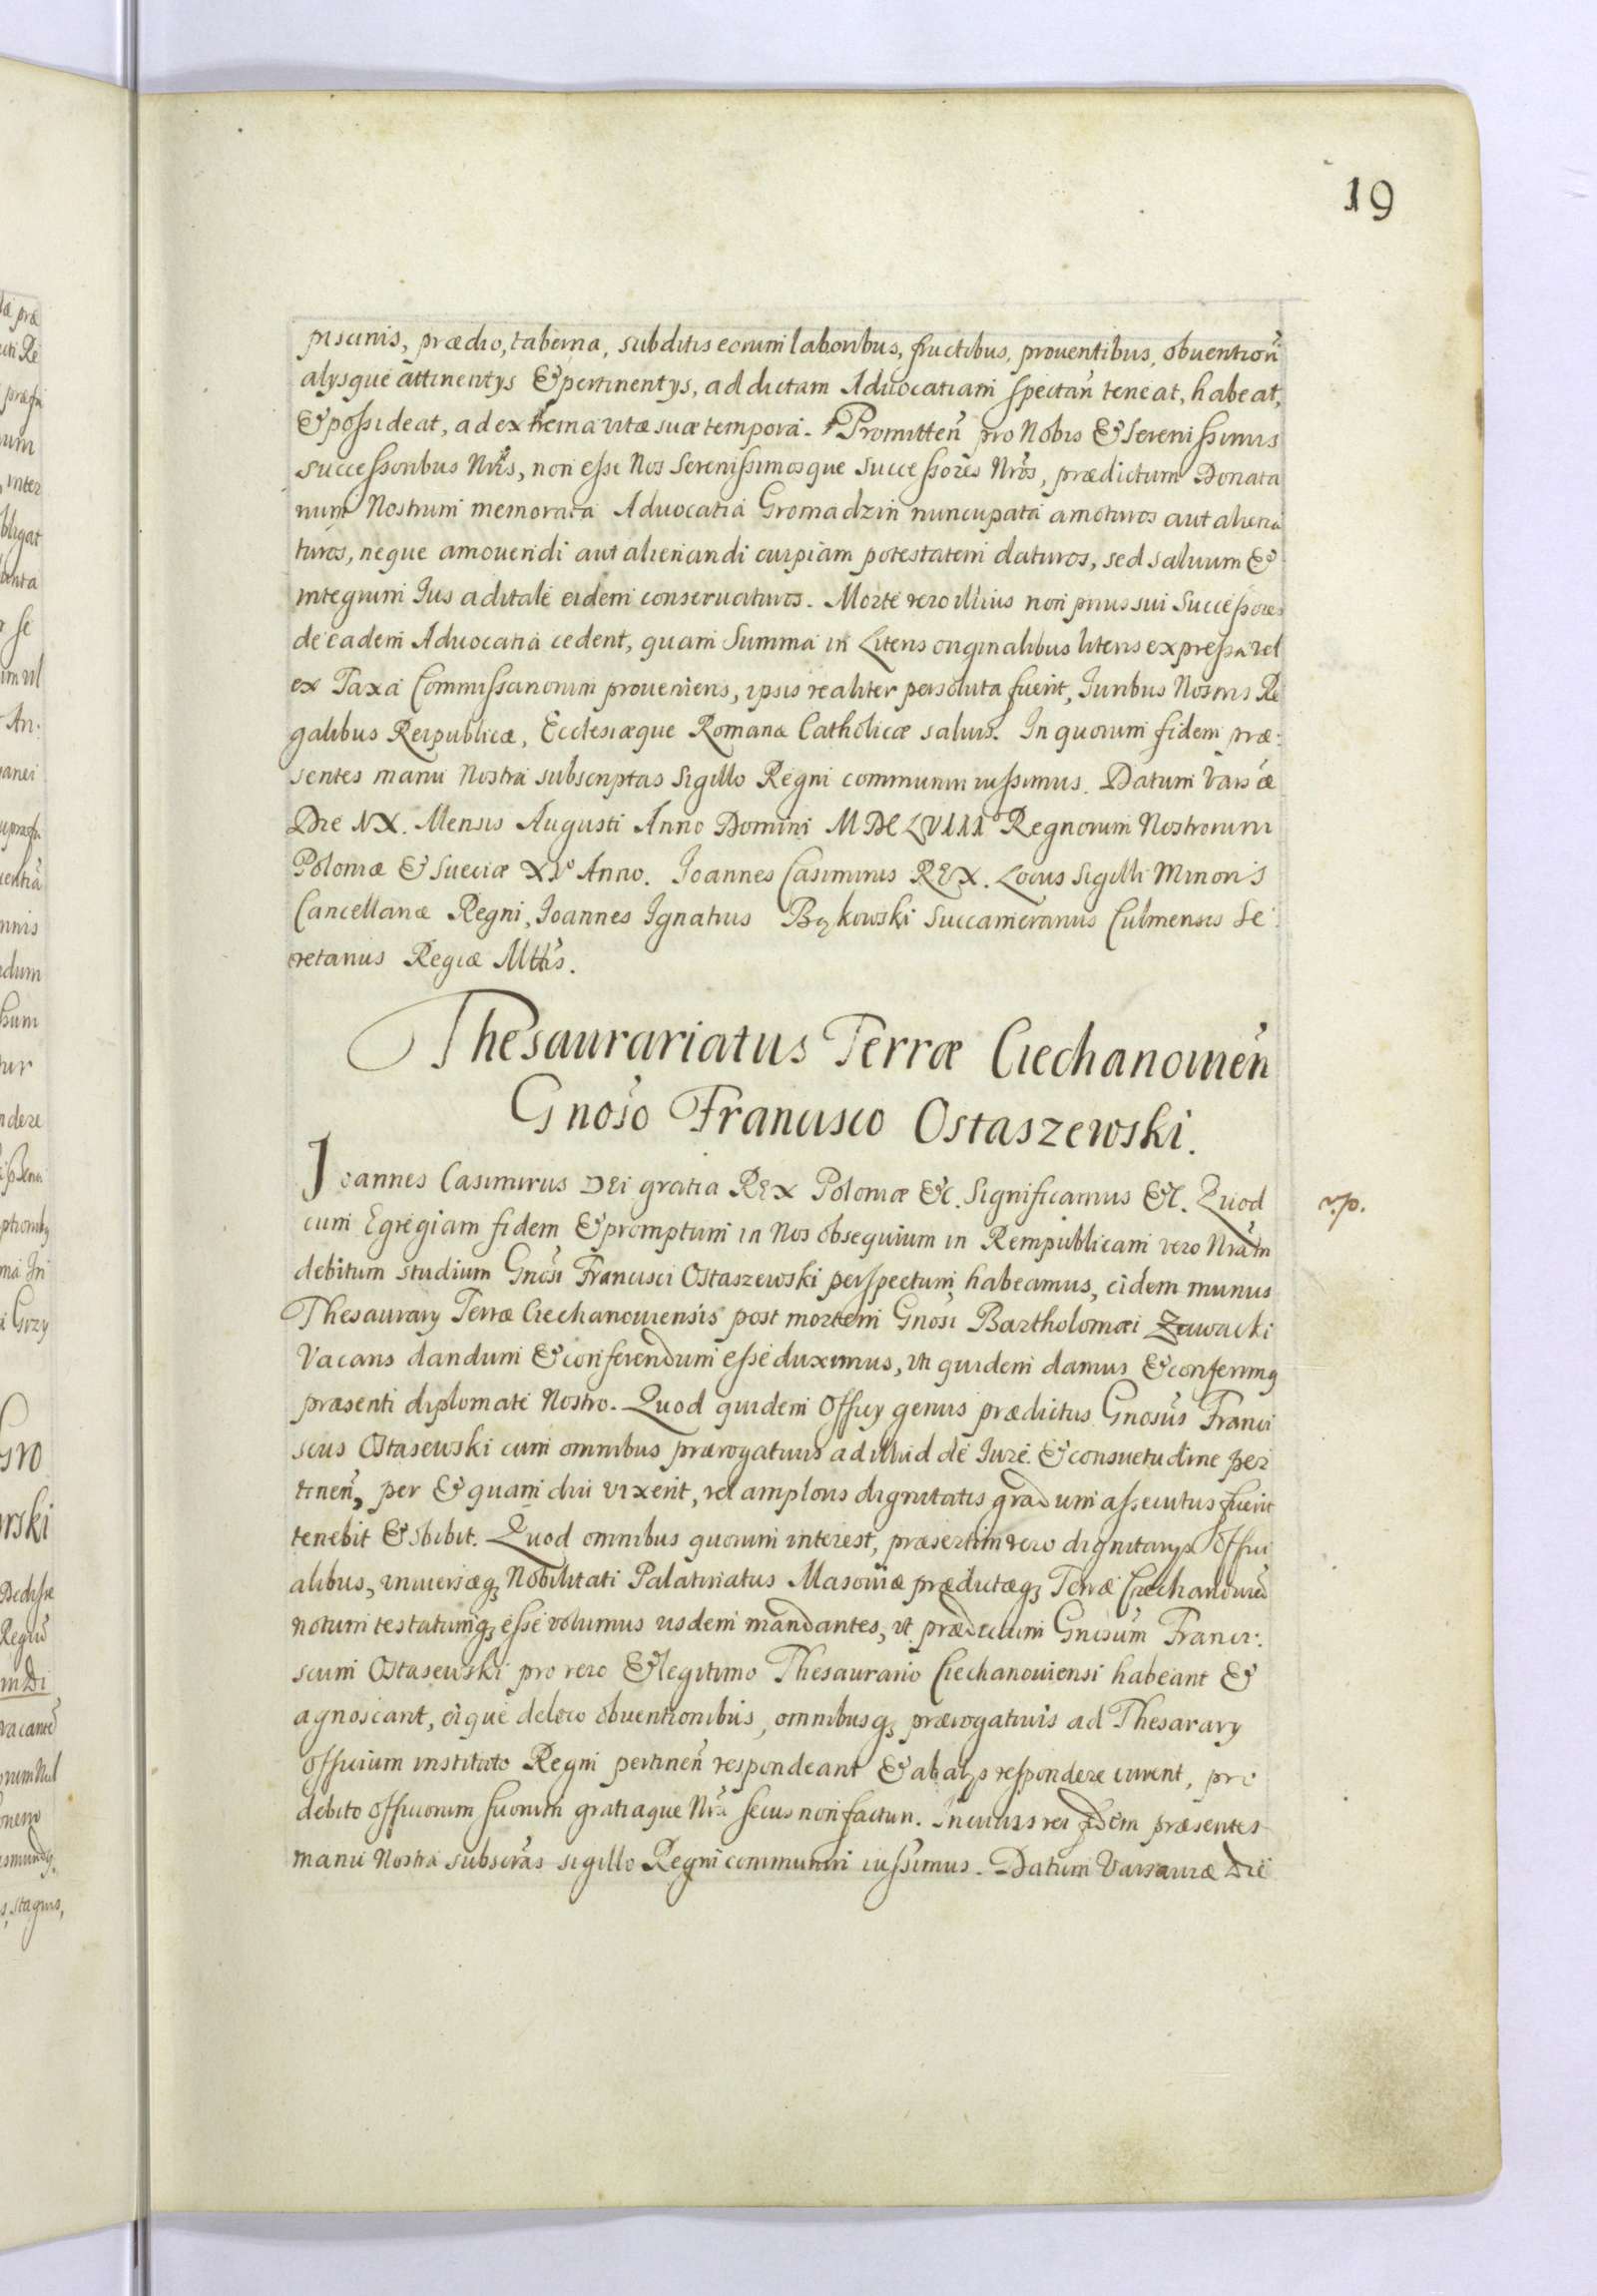 19
piscinis, prædio, taberna, subditis eorum laboribus, fructibus, prouentibus, obuention̄
alysque attinentys & pertinentys, ad dictam Aduocatiam spectan̄ teneat, habeat,
& possideat, ad extrema vitæ suæ tempora. Promitten̄ pro Nobis & Serenissimis
successoribus Nrīs, non esse Nos Serenissimosque Successores Nrōs, prædictum Donata
rium Nostrum memorata Aduocatia Gromadzin nuncupata amoturos aut aliena
turos, neque amouendi aut alienandi cuipiam potestatem daturos, sed saluum &
integrum Ius aditale eidem conseruaturos. Morte vero illius non prius sui Successores
de eadem Aduocatia cedent, quam Summa in Literis originalibus literis expressa vel
ex Taxa Commissariorum proueniens, ipsis realiter persoluta fuerit, Iuribus Nostris Re
galibus Reipublicæ, Ecclesiæque Romanæ Catholicæ saluis. In quorum fidem præ:
sentes manu Nostra subscriptas Sigillo Regni communiri iussimus. Datum Varsæ
Die XX. Mensis Augusti Anno Domini MDCLVIII Regnorum Nostrorum
Poloniæ & Sueciæ XVo Anno. Joannes Casimirus REX. Locus Sigilli Minoris
Cancellariæ Regni, Joannes Ignatius Bąkowski Succamerarius Culmensis Se
cretarius Regiæ Mttis.
Thesaurariatus Terræ Ciechanouien̄
Gnōso Francisco Ostaszewski.
Joannes Casimirus DEi gratia REX Poloniæ &c. Significamus &c. Quod
cum Egregiam fidem & promptum in Nos obsequium in Rempublicam vero Nrām
debitum studium Gnōsi Francisci Ostaszewski perspectum habeamus, eidem munus
Thesaurary Terræ Ciechanouiensis post mortem Gnōsi Bartholomæi Zawacki
Vacans dandum & conferendum esse duximus, vti quidem damus & conferimg
præsenti diplomate Nostro. Quod quidem Officy genus prædictus Gnosūs Franci
scus Ostasewski cum omnibus prærogatiuis ad illud de Iure & consuetudine per
tinen̄, per & quam diu vixerit, vel amplioris dignitatis gradum assecutus fuerit
tenebit & obibit. Quod omnibus quorum interest, præsertim vero dignitarys Offici
alibus, vniuersæq3 Nobilitati Palatinatus Masouiæ prædictæq3 Terræ Ciechanouien̄
notum testatumq3 esse volumus iisdem mandantes, vt prædictum Gnōsum Franci:
scum Ostasewski pro vero & legitimo Thesaurario Ciechanouiensi habeant &
agnoscant, eique de loco obuentionibus, omnibusq3 prærogatiuis ad Thesarary
Officium instituto Regni pertinen̄ respondeant & ab alys respondere curent, pro
debito officiorum suorum gratiaque Nrā secus non factun. In cuius rei fidem præsentes
manu Nostra subscrās sigillo Regni communiri iussimus. Datum Varsauiæ Die